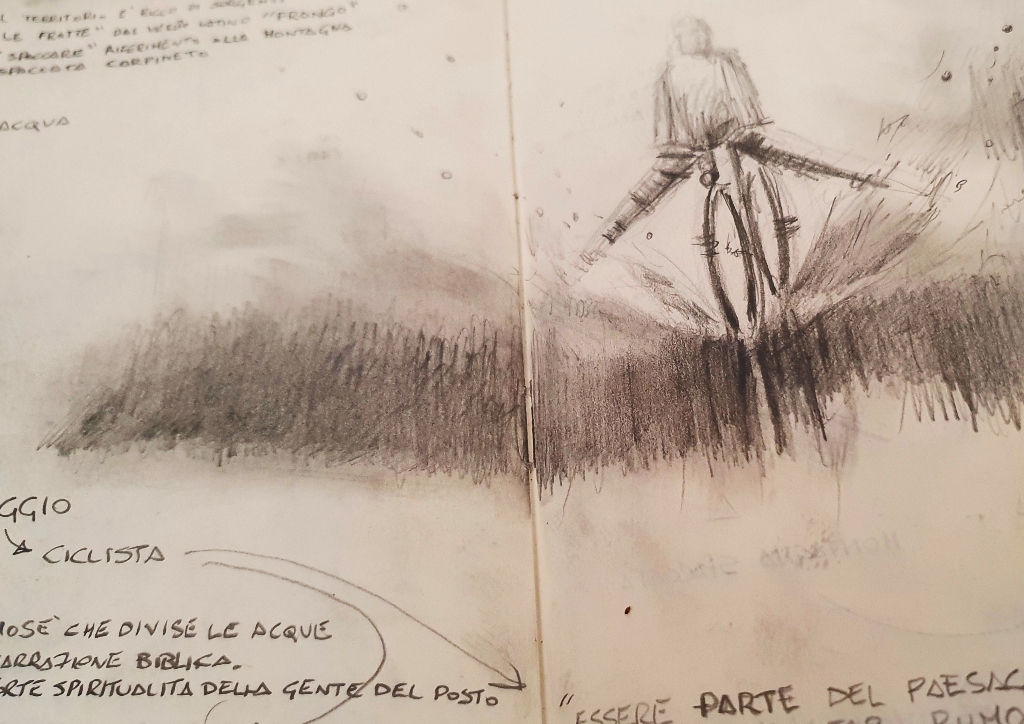 L TERRITORIO È RICCO DI SORGENTI
LE FRATTE" DAL VERBO LATINO "FRANGO"
"SPACCARE" RIFERIMENTO ALLA MONTAGNA
SPACCATA CARPINETO
ACQUA
GGIO
CICLISTA
MOSE' CHE DIVISE LE ACQUE
NARRAZIONE BIBLICA.
ORTE SPIRITUALITA DELLA GENTE DEL POSTO
"ESSERE PARTE DEL PAESAG